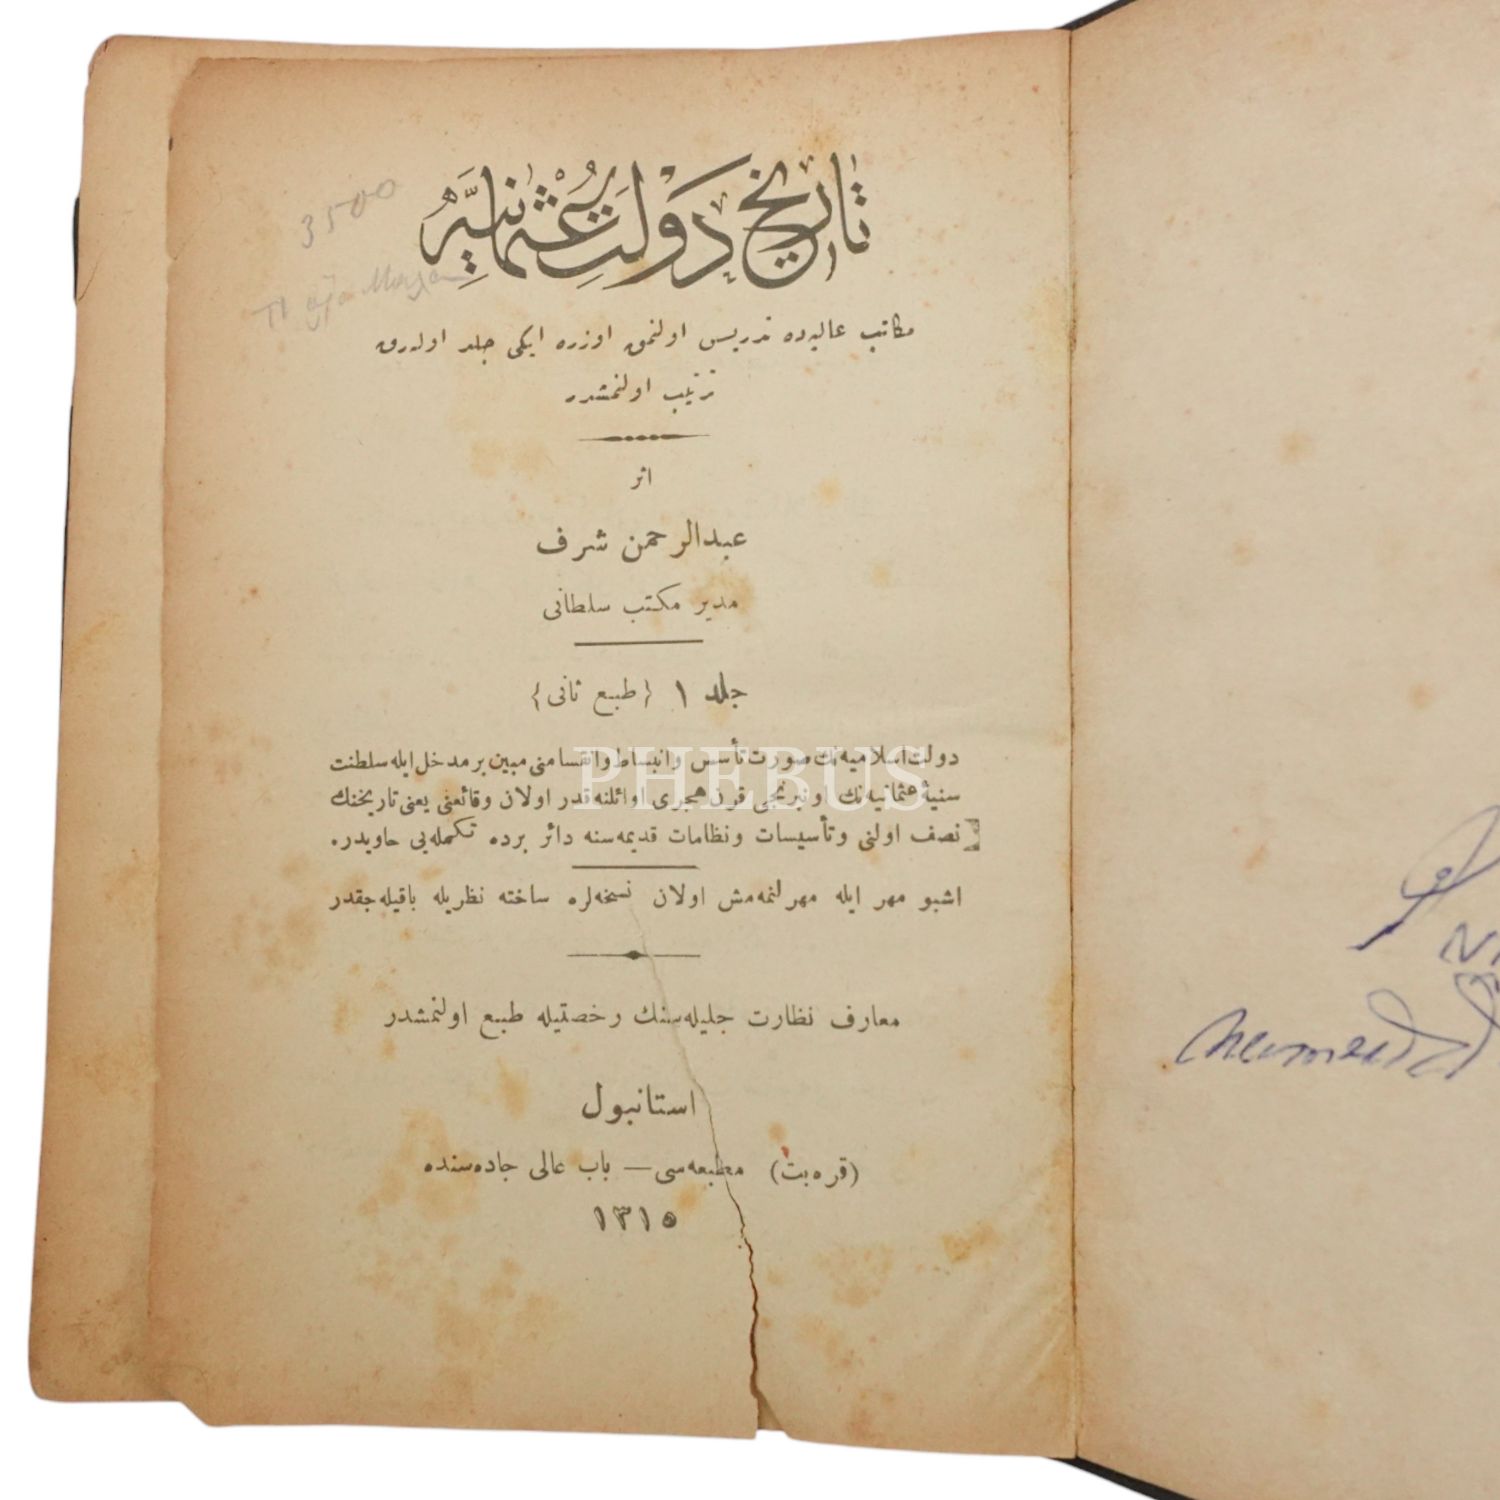 تاریخ دولت عثمانیه
مکاتب عالیه‌ده تدریس اولنمق اوزره ایکی جلد اوله‌رق
ترتیب اولنمشدر
اثر
عبدالرحمن شرف
مدیر مکتب سلطانی
جلد ١ {طبع ثانی}
دولت اسلامیه‌نك صورت تأسس وانبساط وانقسامنی مبین بر مدخل ایله سلطنت
سنیهٔ عثمانیه‌نك اونبرنجی قرن هجری اوائلنه قدر اولان وقائعنی یعنی تاریخنك
نصف اولنی وتأسیسات ونظامات قدیمه‌سنه دائر برده تکمله‌یی حاویدر.
اشبو مهر ایله مهرلنمه‌مش اولان نسخه‌لره ساخته نظریله باقیله‌جقدر
معارف نظارت جلیله‌سنك رخصتیله طبع اولنمشدر
استانبول
(قره‌بت) مطبعه‌سی — باب عالی جاده‌سنده
١٣١٥
3500
PHEBUS